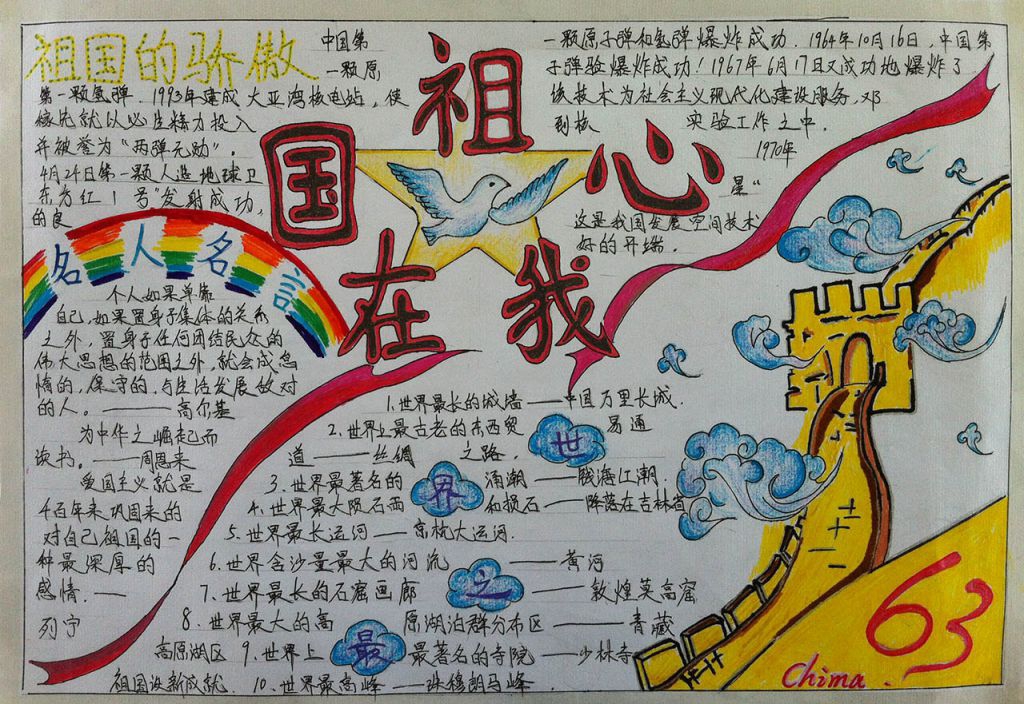 祖国的骄傲
中国第
一颗原
第一颗氢弹.1993年建成大亚湾核电站，使
稼先就以必生精力投入
并被誉为“两弹元勋”.
4月24日第一颗人造地球卫
东方红1号”发射成功,
的良
祖
国
心
在
我
一颗原子弹和氢弹爆炸成功.1964年10月16日,中国第
子弹验爆炸成功!1967年6月17日又成功地爆炸了
该技术为社会主义现代化建设服务.邓
到核 实验工作之中.
1970年
星“
这是我国发展空间技术
好的开端.
名人名言
个人如果单靠
自己,如果置身于集体的关系
之外,置身于任何团结民众的
伟大思想的范围之外,就会成怠
惰的,保守的,与生活发展敌对
的人。——高尔基
为中华之崛起而
读书。——周恩来
爱国主义就是
千百年来巩固来的
对自己祖国的一
种最深厚的
感情.—
列宁
世界之最
1.世界最长的城墙——中国万里长城.
2.世界上最古老的东西贸易通
道——丝绸之路.
3.世界最著名的涌潮——钱塘江潮.
4.世界最大陨石雨和损石——降落在吉林省
5.世界最长运河——京杭大运河.
6.世界含沙量最大的河流——黄河
7.世界最长的石窟画廊——敦煌莫高窟
8.世界最大的高原湖泊群分布区——青藏
高原湖区 9.世界上最著名的寺院——少林寺
祖国设新成就. 10.世界最高峰——珠穆朗马峰.
63
Chima.